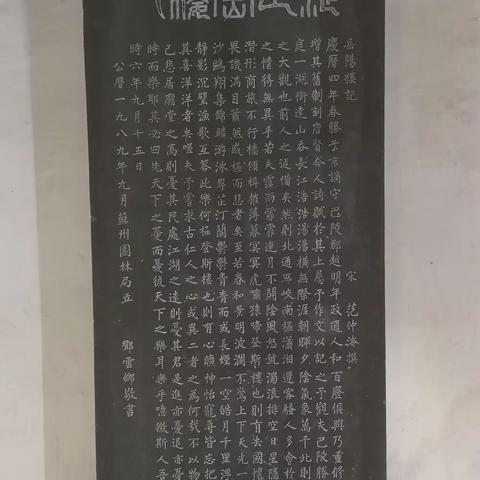 岳陽樓記 宋 范仲淹撰
慶曆四年春滕子京謫守巴陵郡越明年政通人和百廢俱興乃重修
增其舊制刻唐賢今人詩賦於其上屬予作文以記之予觀夫巴陵勝
庭一湖銜遠山吞長江浩浩湯湯橫無際涯朝暉夕陰氣象萬千此則
之大觀也前人之述備矣然則北通巫峽南極瀟湘遷客騷人多會於
之情得無異乎若夫霪雨霏霏連月不開陰風怒號濁浪排空日星隱
潛形商旅不行檣傾楫摧薄暮冥冥虎嘯猿啼登斯樓也則有去國懷
畏譏滿目蕭然感極而悲者矣至若春和景明波瀾不驚上下天光一
沙鷗翔集錦鱗游泳岸芷汀蘭鬱鬱青青而或長煙一空皓月千里浮
靜影沉璧漁歌互答此樂何極登斯樓也則有心曠神怡寵辱皆忘把
其喜洋洋者矣嗟夫予嘗求古仁人之心或異二者之為何哉不以物
己悲居廟堂之高則憂其民處江湖之遠則憂其君是進亦憂退亦憂
時而樂耶其必曰先天下之憂而憂後天下之樂而樂乎噫微斯人吾
時六年九月十五日
公曆一九八九年九月蘇州園林局立 鄧雲鄉敬書